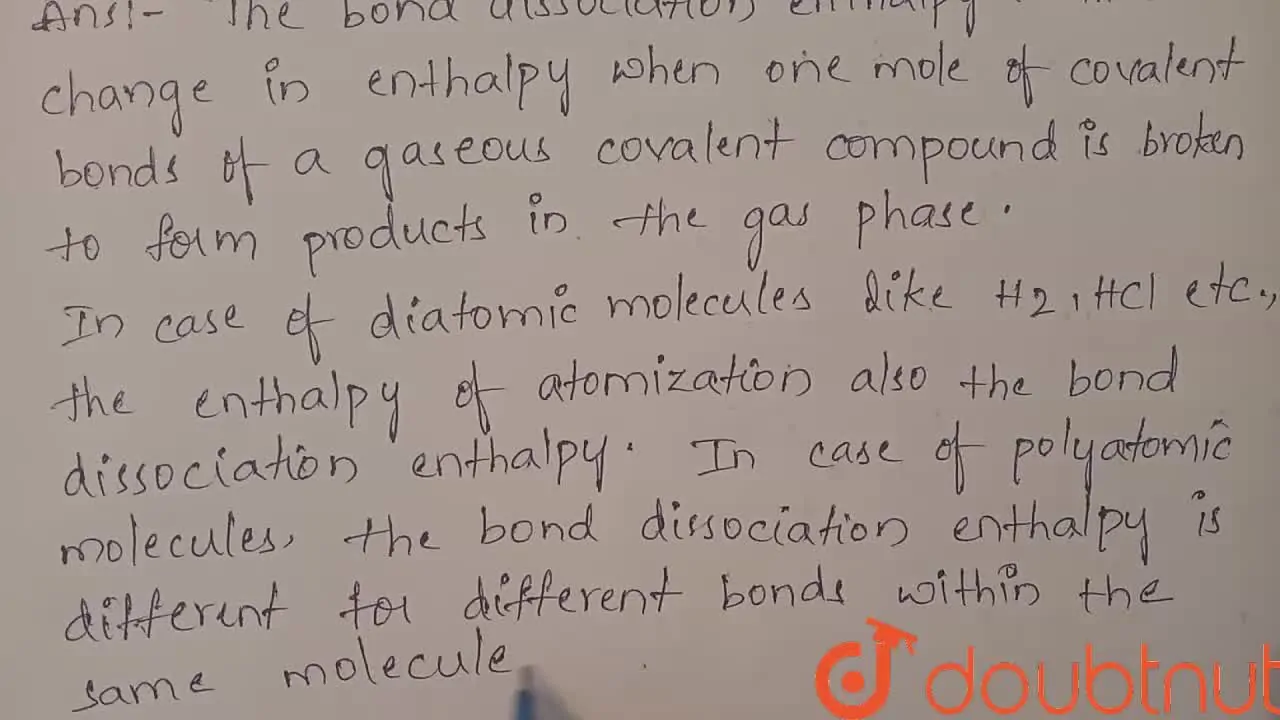 Ans:- The bond dissociation enthalpy
change in enthalpy when one mole of covalent
bonds of a gaseous covalent compound is broken
to form products in the gas phase.
In case of diatomic molecules like H2, HCl etc.,
the enthalpy of atomization also the bond
dissociation enthalpy. In case of polyatomic
molecules, the bond dissociation enthalpy is
different for different bonds within the
same molecule
doubtnut